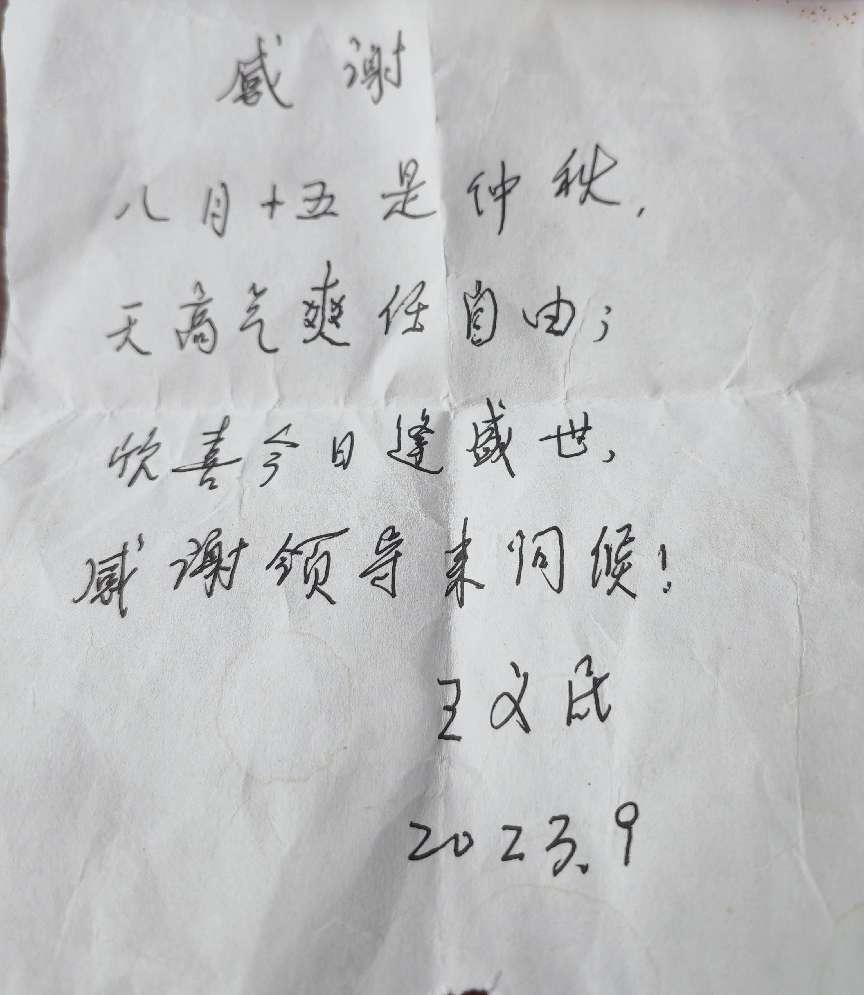 感谢
八月十五是仲秋,
天高气爽任自由;
欣喜今日逢盛世,
感谢领导来问候!
王文民
2023.9